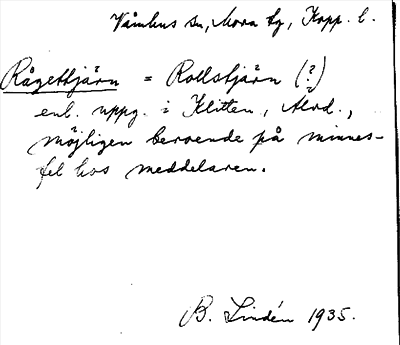 Våmhus sn, Mora tg, Kopp. l.
Rågettjärn = Rollstjärn (?)
enl. uppg. i Klitten, Älvd.,
möjligen beroende på minnes-
fel hos meddelaren.
B. Lindén 1935.